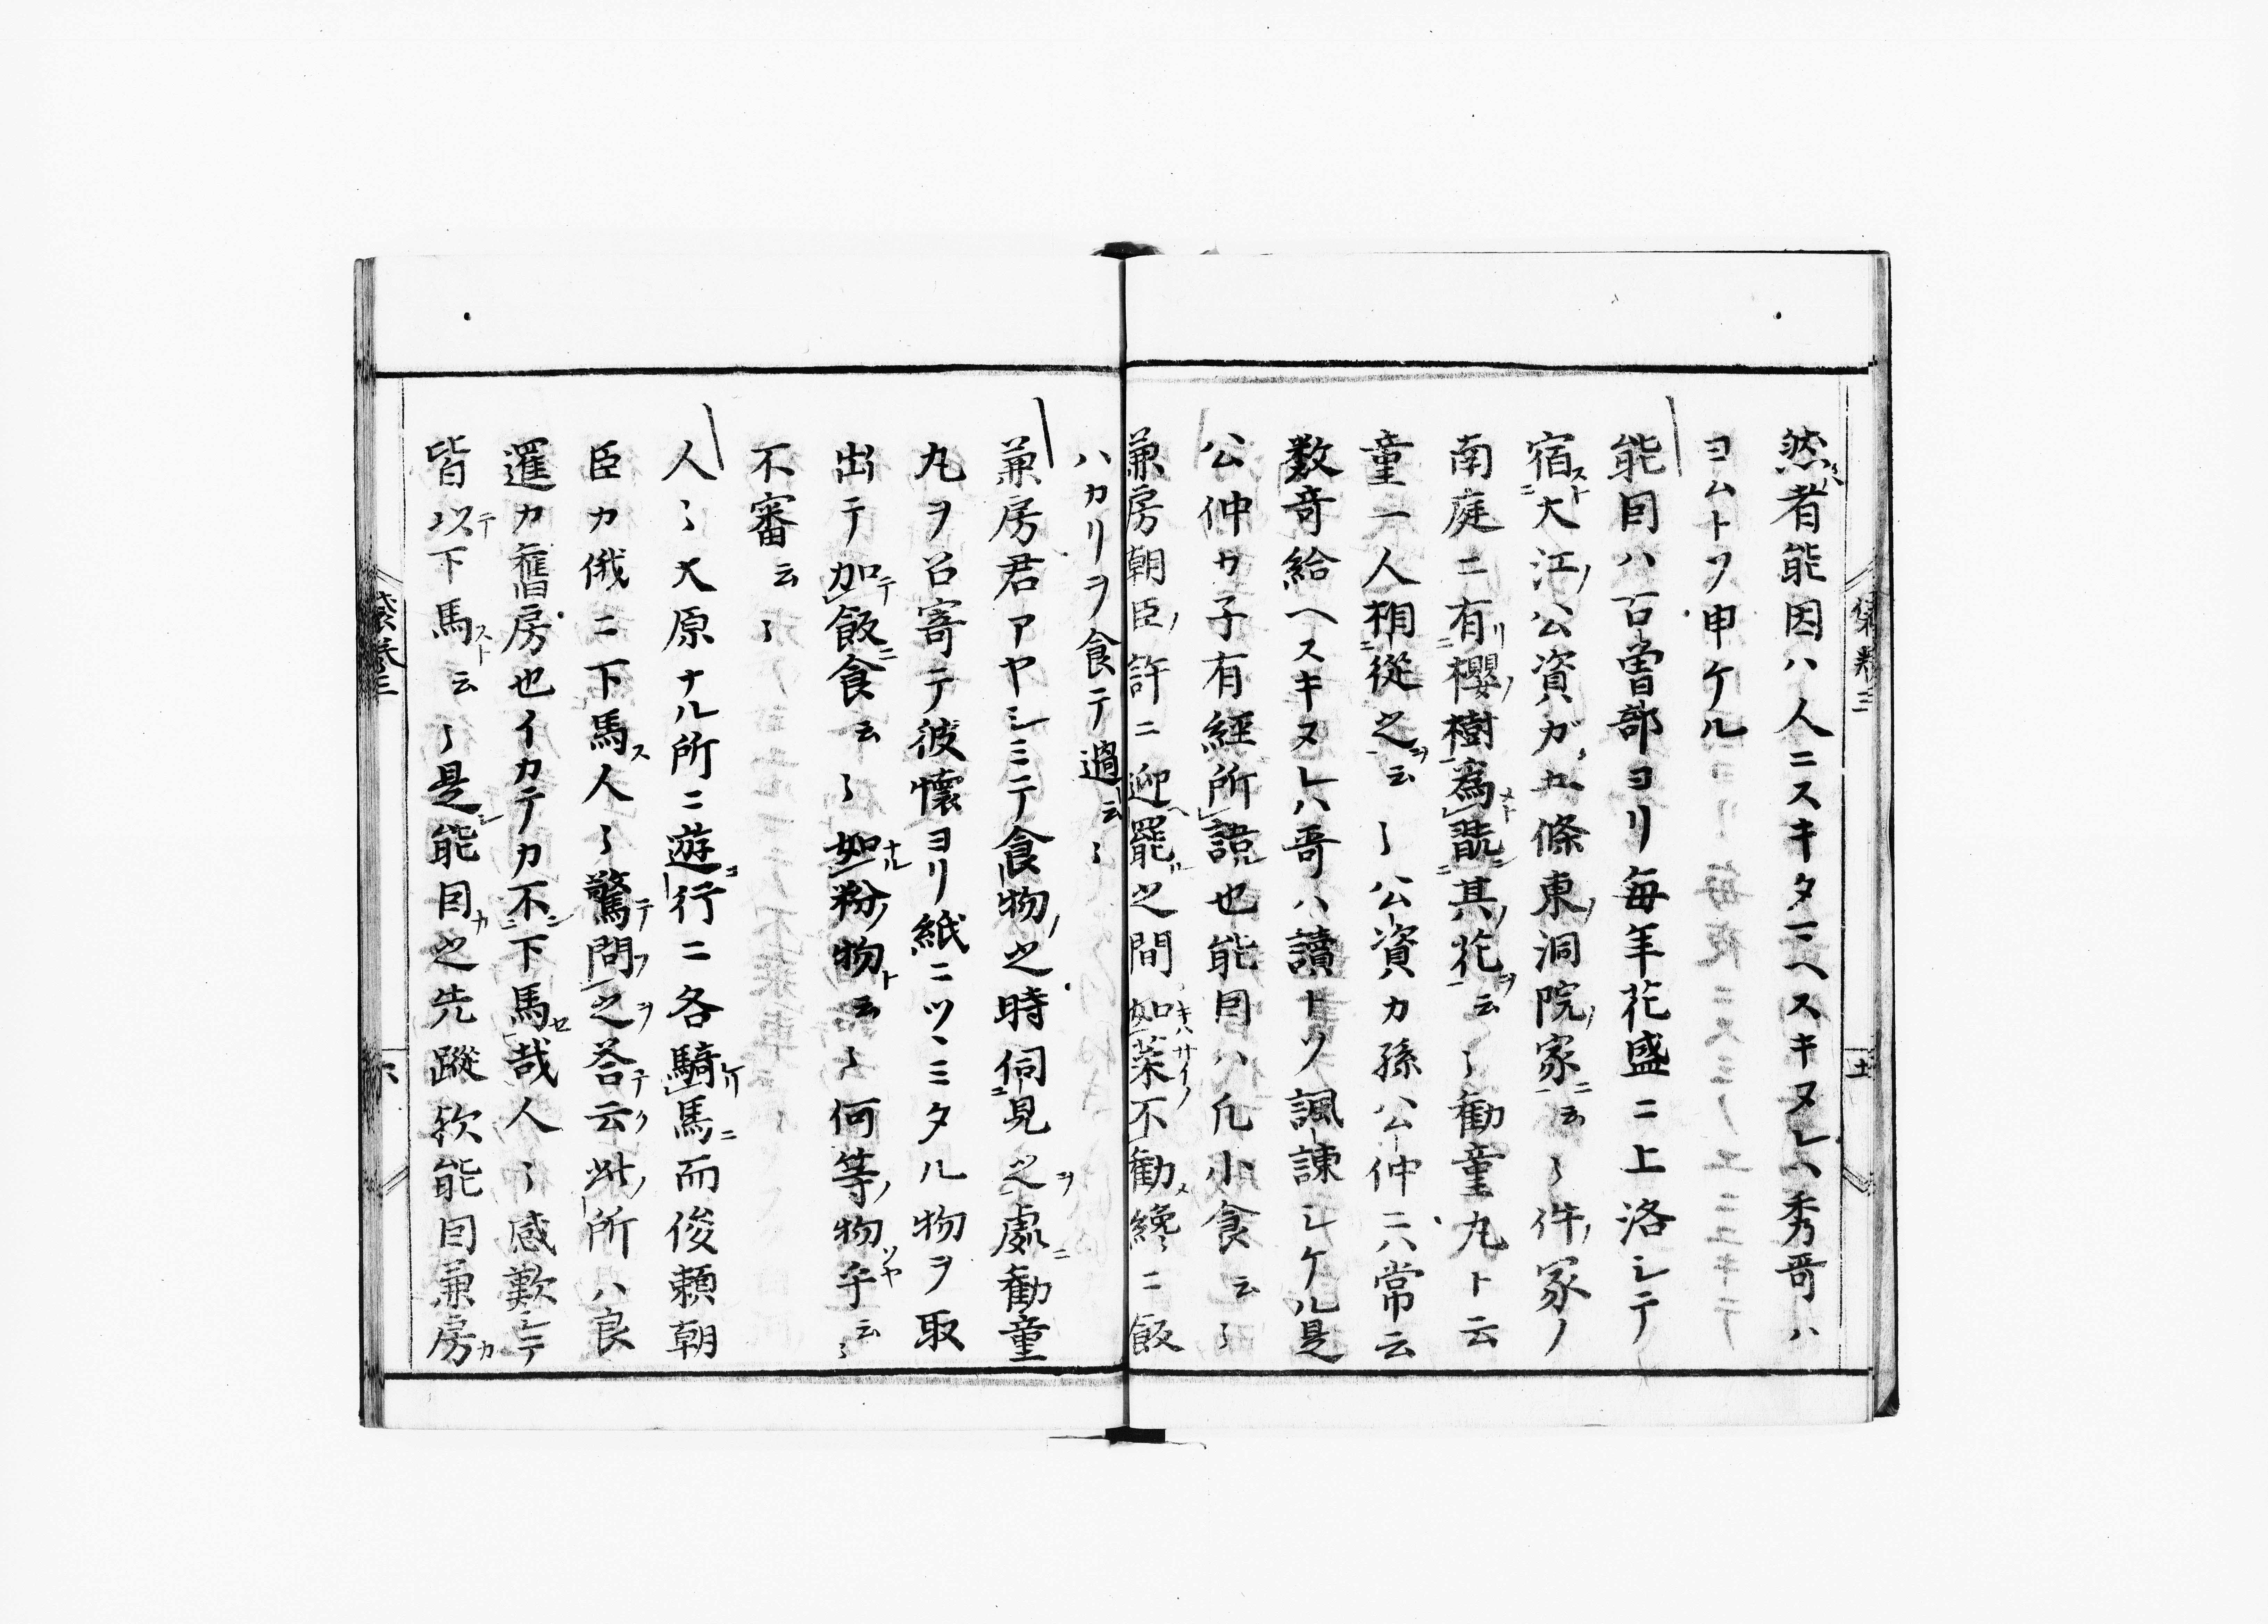 然者能因ハ人ニスキタマヘスキヌレハ秀哥ハ
ヨムトソ申ケル
能因ハ古曽部ヨリ毎年花盛ニ上洛シテ
宿大江公資ガ五條東洞院家云〻件家ノ
南庭ニ有櫻樹為翫其花云〻勧童丸ト云
童一人相従之云〻公資カ孫公仲ニハ常云
数奇給ヘスキヌレハ哥ハ讀トソ諷諌シケル是
公仲カ子有經所語也能因ハ凡小食云〻
兼房朝臣許ニ迎罷之間如菜不勧纔ニ飯
ハカリヲ食テ過云〻
兼房君アヤシミテ食物之時伺見之處勧童
丸ヲ召寄テ彼懐ヨリ紙ニツヽミタル物ヲ取
出テ加飯食云〻如粉物云〻何等物乎云〻
不審云〻
人〻大原ナル所ニ遊行ニ各騎馬而俊頼朝
臣カ俄ニ下馬人〻驚問之荅云此所ハ良
暹カ舊房也イカテカ不下馬哉人〻感歎シテ
皆以下馬云〻是能因之先蹤欤能因兼房
袋巻三